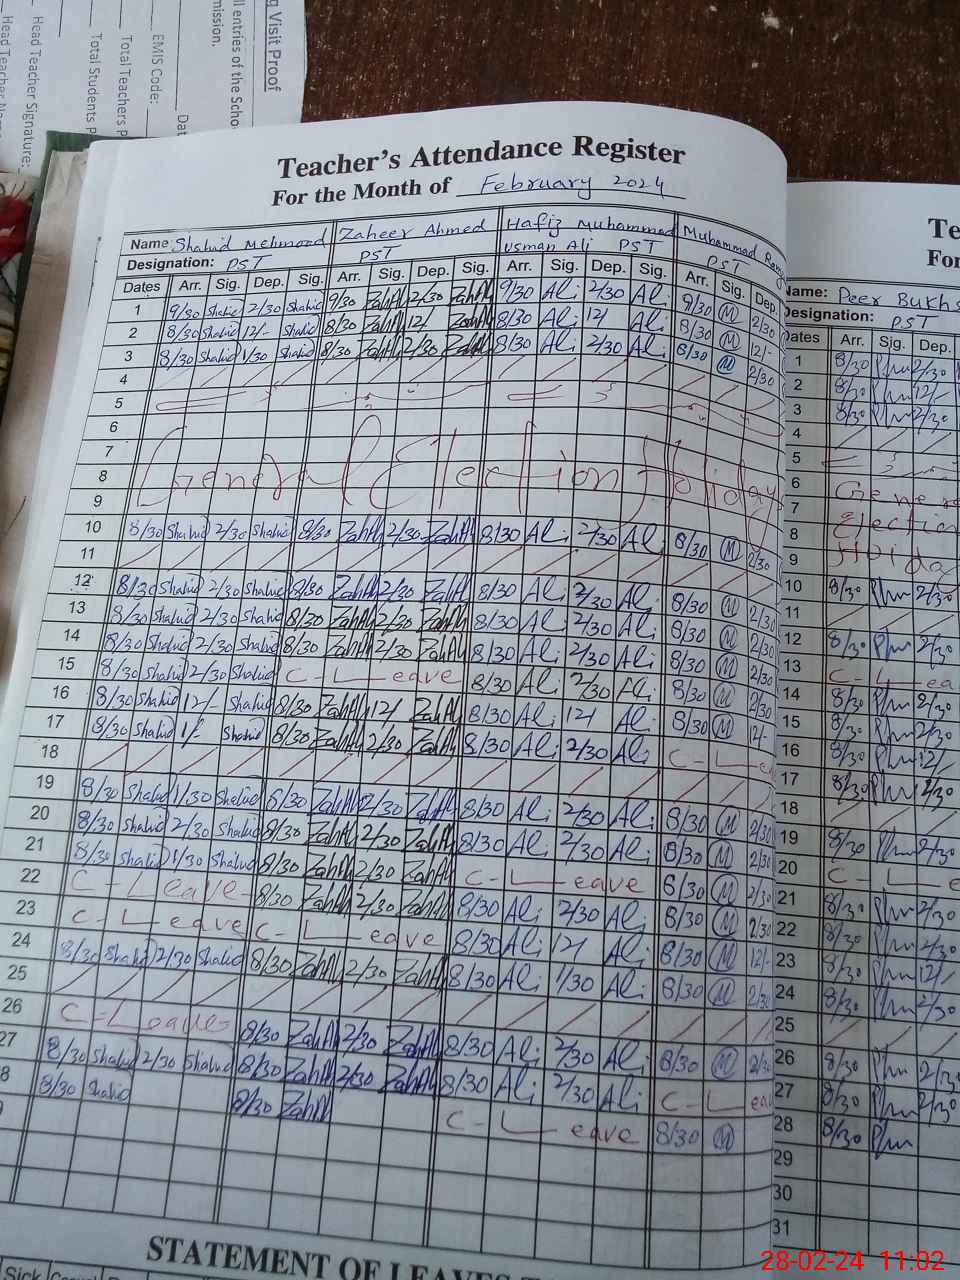 g Visit Proof
ll entries of the Scho
mission.
Dat
EMIS Code:
Total Teachers P
Total Students P
Head Teacher Signature:
Teacher's Attendance Register
For the Month of February 2024
Name Shahid Mehmood Zaheer Ahmed Hafiz Muhammad Muhammad
Designation: PST PST Usman Ali PST PST
Dates Arr. Sig. Dep. Sig. Arr. Sig. Dep. Sig. Arr. Sig. Dep. Sig. Arr. Sig. Dep.
1 9/30 Shahid 2/30 Shahid 9/30 ZahAh 2/30 ZahAh 9/30 Ali 2/30 Ali 9/30 M 2/30
2 8/30 Shahid 12/- Shahid 8/30 ZahAh 12/ ZahAh 8/30 Ali 12/ Ali 8/30 M 12/-
3 8/30 Shahid 1/30 Shahid 8/30 ZahAh 2/30 ZahAh 8/30 Ali 2/30 Ali 8/30 M 2/30
4
5
6
7
8 General Election Holiday
9
10 8/30 Shahid 2/30 Shahid 8/30 ZahAh 2/30 ZahAh 8/30 Ali 2/30 Ali 8/30 M 2/30
11
12 8/30 Shahid 2/30 Shahid 8/30 ZahAh 2/30 ZahAh 8/30 Ali 2/30 Ali 8/30 M 2/30
13 8/30 Shahid 2/30 Shahid 8/30 ZahAh 2/30 ZahAh 8/30 Ali 2/30 Ali 8/30 M 2/30
14 8/30 Shahid 2/30 Shahid 8/30 ZahAh 2/30 ZahAh 8/30 Ali 2/30 Ali 8/30 M 2/30
15 8/30 Shahid 2/30 Shahid C-Leave 8/30 Ali 2/30 Ali 8/30 M 2/30
16 8/30 Shahid 12/- Shahid 8/30 ZahAh 12/ ZahAh 8/30 Ali 12/ Ali 8/30 M 12/-
17 8/30 Shahid 1/- Shahid 8/30 ZahAh 2/30 ZahAh 8/30 Ali 2/30 Ali C-Lea
18
19 8/30 Shahid 1/30 Shahid 8/30 ZahAh 2/30 ZahAh 8/30 Ali 2/30 Ali 8/30 M 2/30
20 8/30 Shahid 2/30 Shahid 8/30 ZahAh 2/30 ZahAh 8/30 Ali 2/30 Ali 8/30 M 2/30
21 8/30 Shahid 1/30 Shahid 8/30 ZahAh 2/30 ZahAh C-Leave 8/30 M 2/30
22 C-Leave 8/30 ZahAh 2/30 ZahAh 8/30 Ali 2/30 Ali 8/30 M 2/30
23 C-Leave C-Leave 8/30 Ali 12/ Ali 8/30 M 12/-
24 8/30 Shahid 2/30 Shahid 8/30 ZahAh 2/30 ZahAh 8/30 Ali 1/30 Ali 8/30 M 2/30
25
26 C-Leave 8/30 ZahAh 2/30 ZahAh 8/30 Ali 2/30 Ali 8/30 M 2/30
27 8/30 Shahid 2/30 Shahid 8/30 ZahAh 2/30 ZahAh 8/30 Ali 2/30 Ali C-Lea
8 8/30 Shahid 8/30 ZahAh C-Leave 8/30 M
STATEMENT OF LEAVES T
Sick
Te
For
Name: Peer Bukhs
Designation: PST
Dates Arr. Sig. Dep.
1 8/30 2/30
2 8/30 12/-
3 8/30 2/30
4
5
6 Genera
7 Election
8 Holiday
9
10 8/30 2/30
11
12 8/30 2/30
13 C-Lea
14 8/30 2/30
15 8/30 2/30
16 8/30 12/
17 8/30 2/30
18
19 8/30 2/30
20 C-Le
21 8/30 2/30
22 8/30 2/30
23 8/30 12/
24 8/30 2/30
25
26 8/30 2/30
27 8/30 2/30
28 8/30
29
30
31
28-02-24 11:02